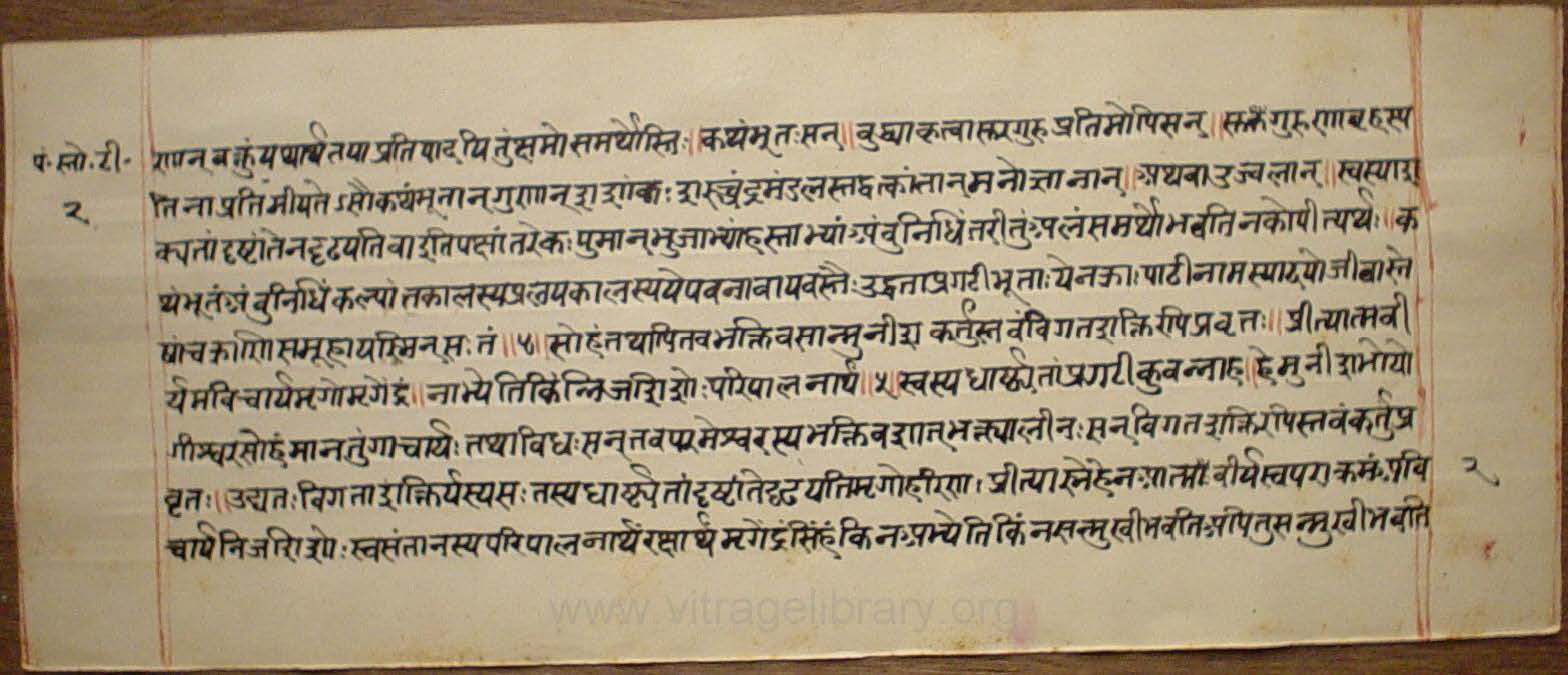 पं. स्तो. टी.
२
णान् वक्तुं यथार्थतया प्रतिपादयितुं क्षमो समर्थोस्तिः॥ कथंभूतः सन्॥ बुद्ध्या कृत्वा सुरगुरु प्रतिमोपि सन्॥ गुरुणा बृहस्प
तिना प्रतिमीयतेऽसौ कथंभूतान् गुणान् शशांक शश्चंद्रमंडलस्तद्वत्कांतान् मनोज्ञानान्॥ अथवा उज्वलान्॥ स्वस्याश
क्यतां दृष्टांतेन दृढयति वा इति पक्षांतरे कः पुमान् भुजाभ्यां हस्ताभ्यां अंबुनिधिं तरीतुं अलं समर्थो भवति न कोपीत्यर्थः॥ क
थंभूतं अंबुनिधिं कल्पांतकालस्य प्रलयकालस्य ये पवना वायवस्तैः उद्धता प्रगटीभूताः ये नक्राः पाठीनामस्यादयो जीवास्ते
षां चक्राणि समूहा यस्मिन् सः तं॥४॥ सोहं तथापि तव भक्तिवसान्मुनीश कर्तुं स्तवं विगतशक्तिरपि प्रवृत्तः॥ प्रीत्यात्मवी
र्यमविचार्य मृगो मृगेंद्रं॥ नाभ्येति किंन्निजशिशोः परिपालनार्थं॥५॥ स्वस्य धार्ष्ट्यतां प्रगटीकुवन्नाह॥ हे मुनीश भो यो
गीश्वर सोहं मानतुंगाचार्यः तथाविधः सन् तव परमेश्वरस्य भक्तिवशात् भक्त्यालीनः सन् विगतशक्तिरपि स्तवं कर्तुं प्र
वृतः॥ उद्यतः विगता शक्तिर्यस्य सः तस्य धार्ष्ट्यतां दृष्टांते दृढयति मृगो हरिणः प्रीत्या स्नेहेन आत्मवीर्यं स्वपराक्रमं अवि
चार्य निजशिशोः स्वसंतानस्य परिपालनार्थं रक्षार्थं मृगेंद्रं सिंहं किं न अभ्येति किं न सन्मुखीभवति अपितु सन्मुखीभवति
२
www.vitragelibrary.org